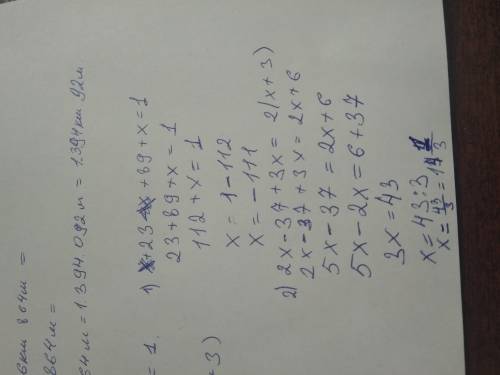 6км 864м =
864м =
64м = 1.394.092м = 1394км 92м
= 1.
+3)
1) +23 +89+x=1
23+89+x=1
112+x=1
x=1-112
x=-111
2) 2x-37+3x=2(x+3)
2x-37+3x=2x+6
5x-37=2x+6
5x-2x=6+37
3x=43
x=43:3
x=43/3=